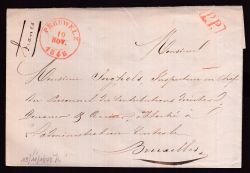 franco
PERUWELZ
10
NOV.
1846
P.P.
Monsieur
Monsieur Inspecteur en chef
du Personnel des Contributions directes,
Douanes & attaché à
l'administration Centrale
Bruxelles